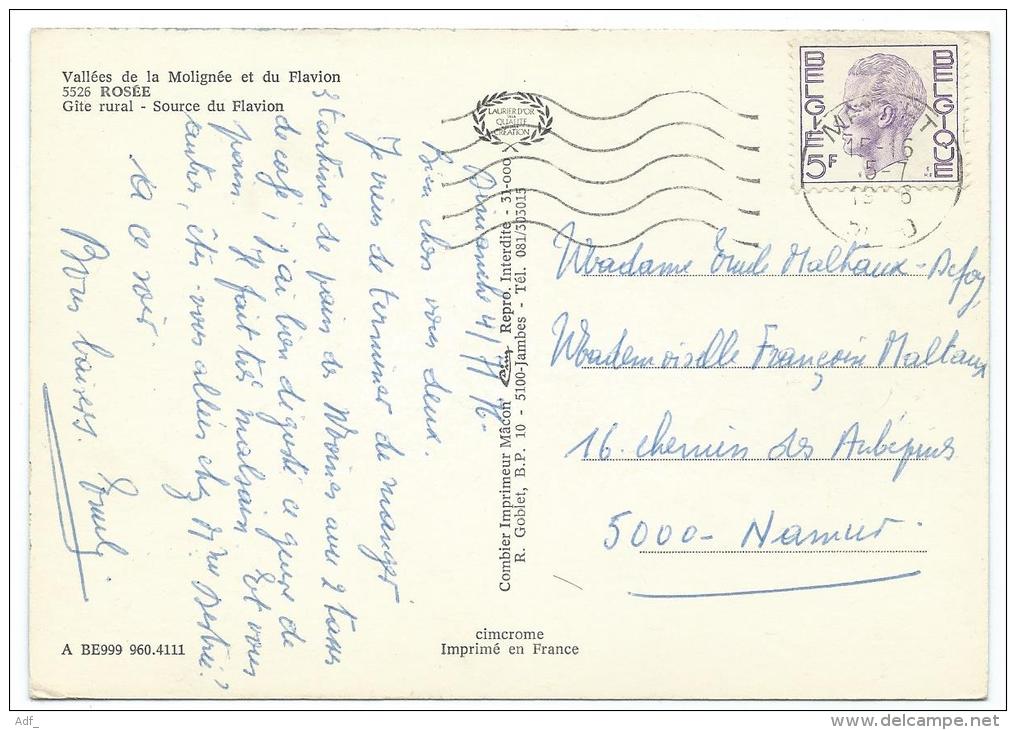 Vallées de la Molignée et du Flavion
5526 ROSÉE
Gîte rural - Source du Flavion
LAURIER D'OR
QUALITÉ
CRÉATION
BELGIE 5F
BELGIQUE
15-16
5-7
19 6
Dimanche 4/7/76.
Bien chers vous deux.
Je viens de terminer de manger
3 tartines de pain des Moines avec 2 tasses
de café, j'ai bien digusté ce genre de
pain. Il fait très malsain. Et vous
autres, êtes-vous allées chez Mme Destrée?
A ce soir.
Bons baisers.
Combier Imprimeur Mâcon Repro. Interdite - 31-000
R. Goblet, B.P. 10 - 5100-Jambes - Tél. 081/303015
Madame Emile Malhaux-Defoy
Mademoiselle Françoise Malhaux
16. chemin des Aubépines
5000 - Namur.
A BE999 960.4111
cimcrome
Imprimé en France
Adf_
www.delcampe.net